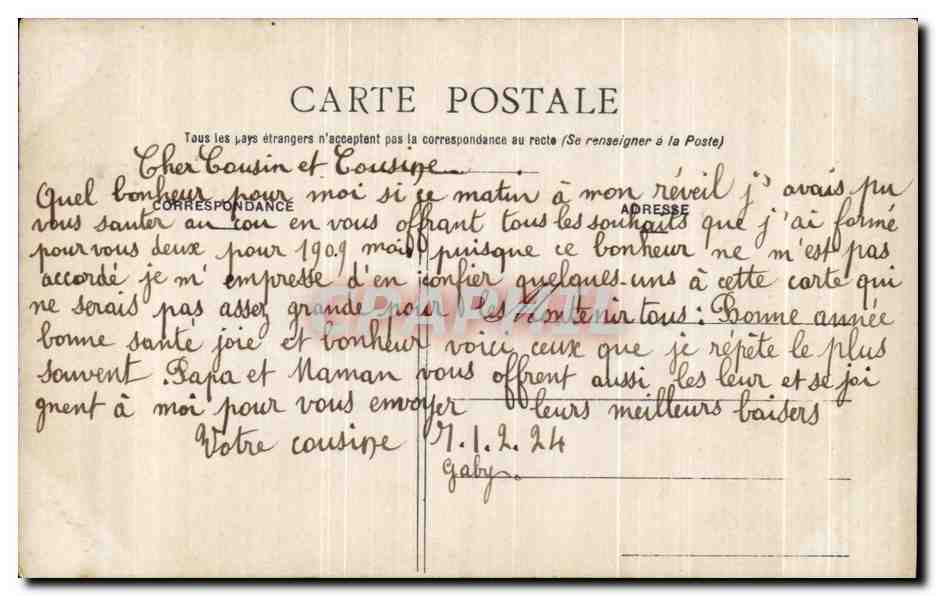 CARTE POSTALE
Tous les pays étrangers n'acceptent pas la correspondance au recto (Se renseigner à la Poste)
Cher Cousin et Cousine
Quel bonheur pour moi si ce matin à mon réveil j'avais pu
CORRESPONDANCE ADRESSE
vous sauter au cou en vous offrant tous les souhaits que j'ai formé
pour vous deux pour 1909 mais puisque ce bonheur ne m'est pas
accordé je m'empresse d'en confier quelques-uns à cette carte qui
ne serais pas assez grande pour les contenir tous : Bonne année
CPARAMA
bonne santé joie et bonheur voici ceux que je répète le plus
souvent. Papa et Maman vous offrent aussi les leur et se joi
gnent à moi pour vous envoyer leurs meilleurs baisers
Votre cousine 7.1.2.24
Gaby.